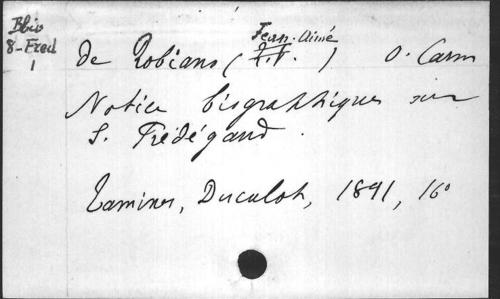 Bbis
8-Fred
1
Jean-Aimé
de Robiano (P.F.) O. Carm
Notice biographique sur
S. Frédégand.
Tamines, Duculot, 1891, 16°